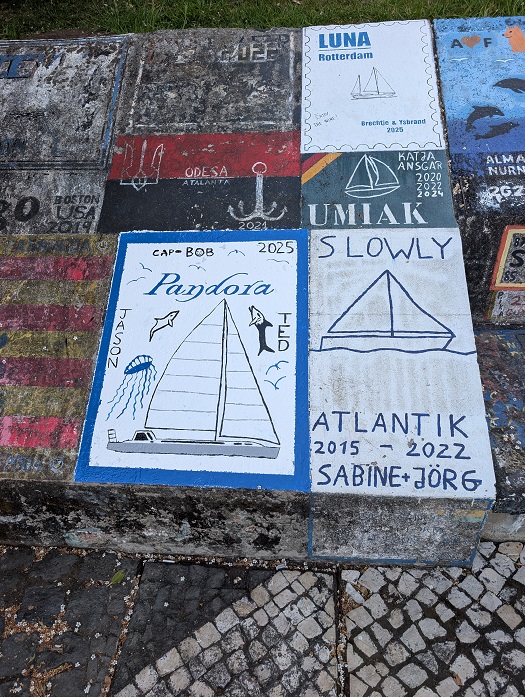 LUNA
Rotterdam
Brechtje & Ysbrand
2025
A F
ODESA
ATALANTA
2021
KATJA
ANSGAR
2020
2022
2024
UMIAK
ALMA
BOSTON
USA
2019
CAP-BOB
2025
Pandora
JASON
TED
SLOWLY
ATLANTIK
2015 - 2022
SABINE+JÖRG